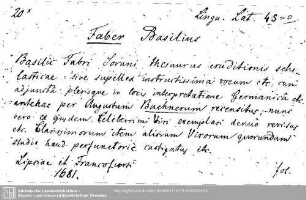 20x
Lingu. Lat. 45-0
Faber Basilius
Basilii Fabri Sorani thesaurus eruditionis scho-
lasticae: sive supellex instructissima vocum etc. cum
adjuncta plerisque in locis interpretatione Germanica etc.
antehac per Augustum Buchnerum recensitus; nunc
vero ex ejusdem Celeberrimi Viri exemplari denuo revisus
etc. Clarissimorum item aliorum Virorum quorundam
studio haud perfunctorie castigatus etc.
Lipsiae et Francofurti
1681.
fol.